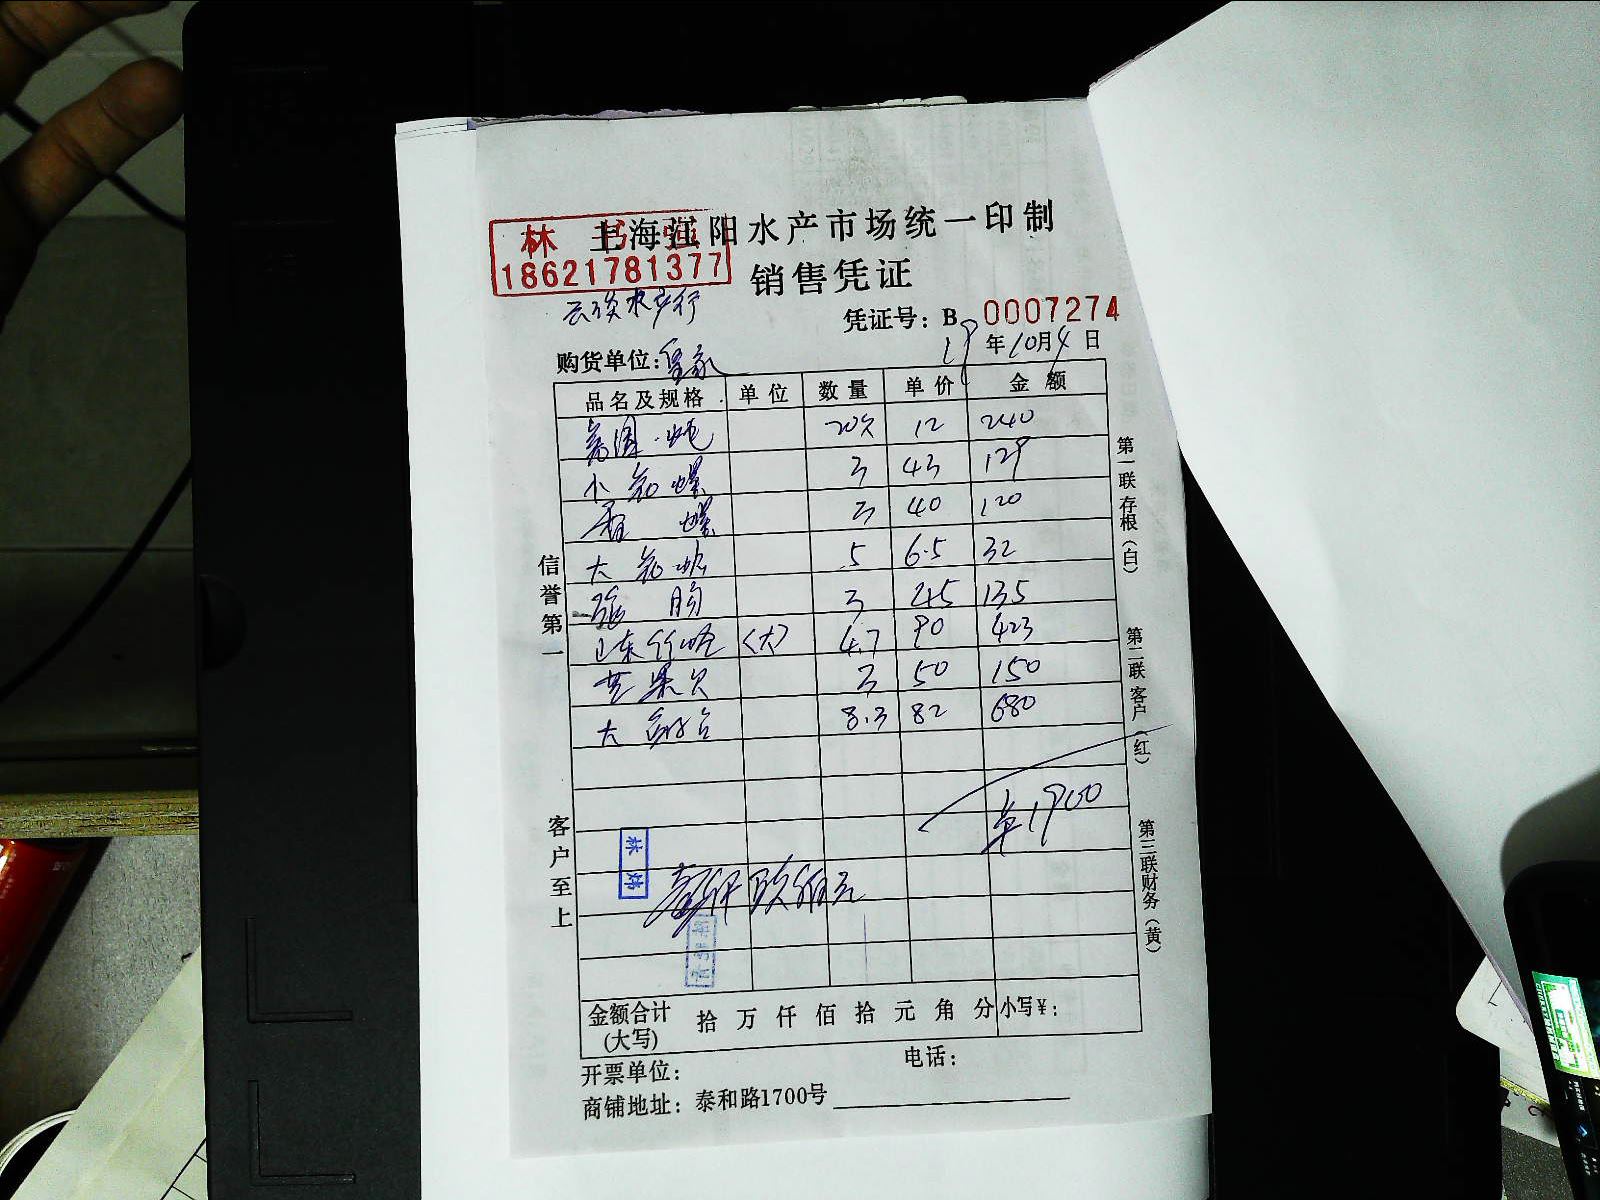 上海江阳水产市场统一印制
林
18621781377
销售凭证
水产行
凭证号：B 0007274
19年10月4日
购货单位：
品名及规格 单位 数量 单价 金额
20 12 240
小 螺 3 43 129
香螺 3 40 120
大 5 6.5 32
3 45 135
山东竹蛏 〈大〉 4.7 90 423
芒果贝 3 50 150
大 8.3 82 680
1900
林
壹仟玖佰元
金额合计(大写) 拾 万 仟 佰 拾 元 角 分 小写¥：
开票单位： 电话：
商铺地址：泰和路1700号
信誉第一
客户至上
第一联存根（白）
第二联客户（红）
第三联财务（黄）